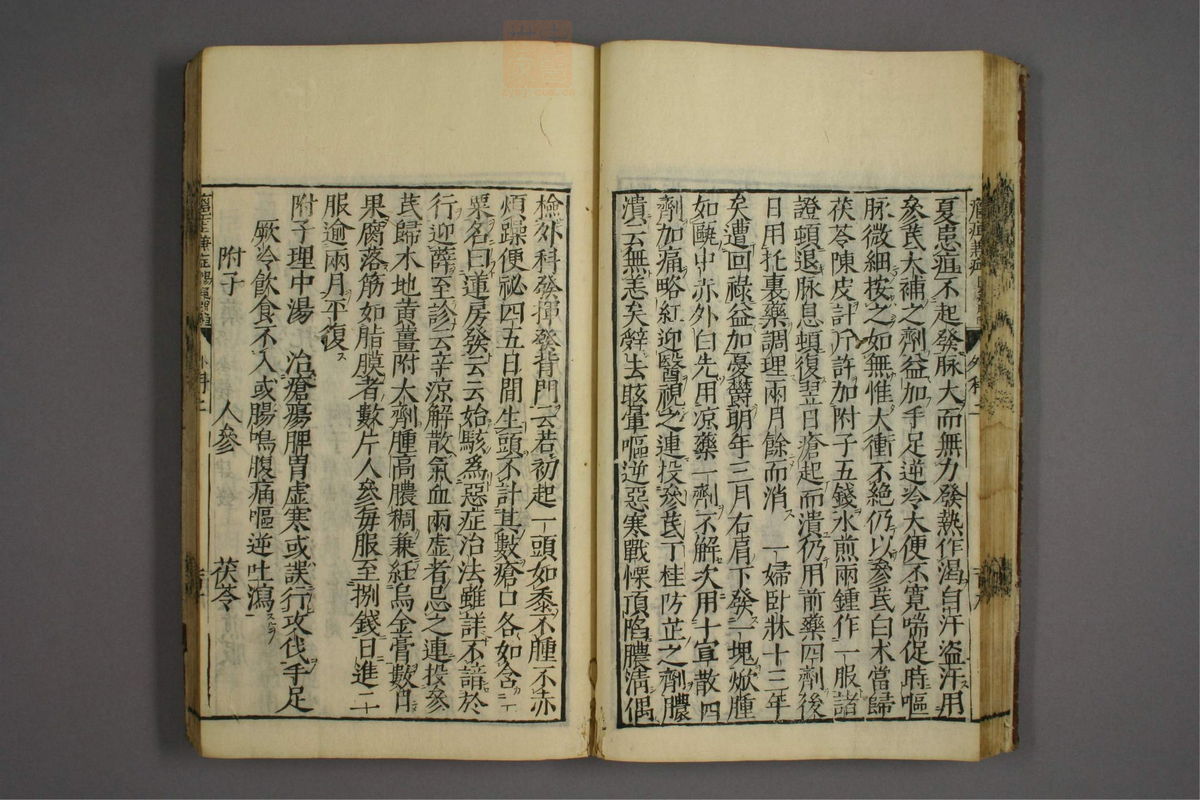 夏患疽不起發脉大而無力發熱作渴自汗盗汗用
參芪大補之劑益加手足逆冷大便不寛喘促時嘔
脉微細按之如無惟大衝不絶仍以參芪白术當歸
茯苓陳皮計斤許加附子五錢水煎兩鍾作一服諸
證頓退脉息頓復翌日瘡起而潰仍用前藥四劑後
日用托裏藥調理兩月餘而消 一婦卧牀十三年
矣遭回祿益加憂欝明年三月右肩下發一塊焮腫
如甌中赤外白先用凉藥一劑不解次用十宣散四
劑加痛略紅迎醫視之連投參芪丁桂防芷之劑膿
潰云無恙矣辝去眩暈嘔逆惡寒戰慄頂陷膿淸偶
檢外科發揮發背門云若初起一頭如黍不腫不赤
煩躁便祕四五日間生頭不計其數瘡口各如含一
粟名曰蓮房發云云始駭為惡症治法雖詳不諳於
行迎薛至診云辛涼解散氣血兩虛者忌之連投參
芪歸术地黄薑附大劑腫高膿稠兼紝烏金膏數日
果腐落筋如脂膜者數片人參毎服至捌錢日進二
服逾兩月平復
附子理中湯 治瘡瘍脾胃虛寒或誤行攻伐手足
厥冷飲食不入或腸鳴腹痛嘔逆吐瀉
附子 人參 茯苓